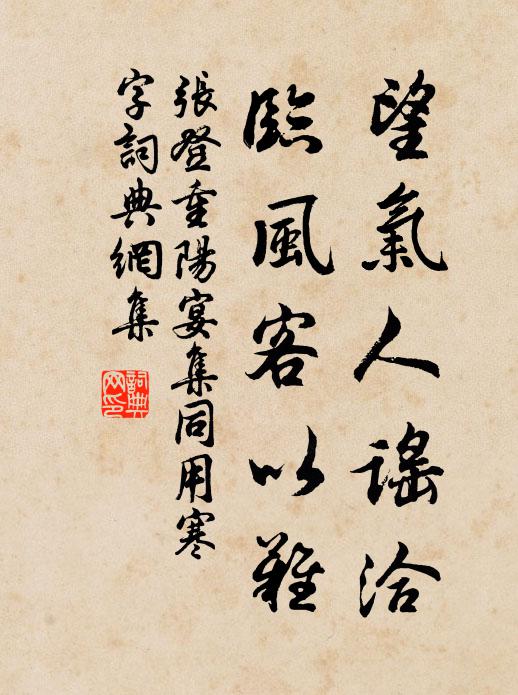 望氣人謠洽
臨風客以難
張登重陽宴集同用寒
字詞典網集
詞典
网印